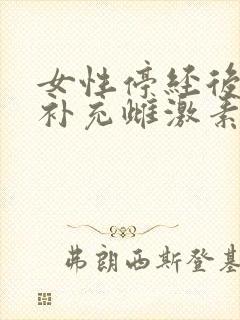 女性停经後
补充雌激素
弗朗西斯登基